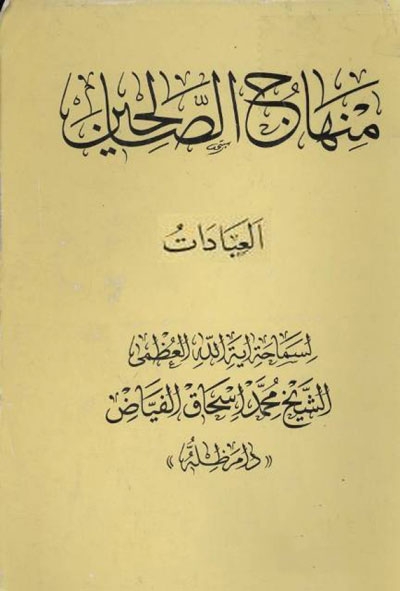 منهاج الصالحين
العبادات
لسماحة اية الله العظمى
الشيخ محمد اسحاق الفياض
«دام ظله»